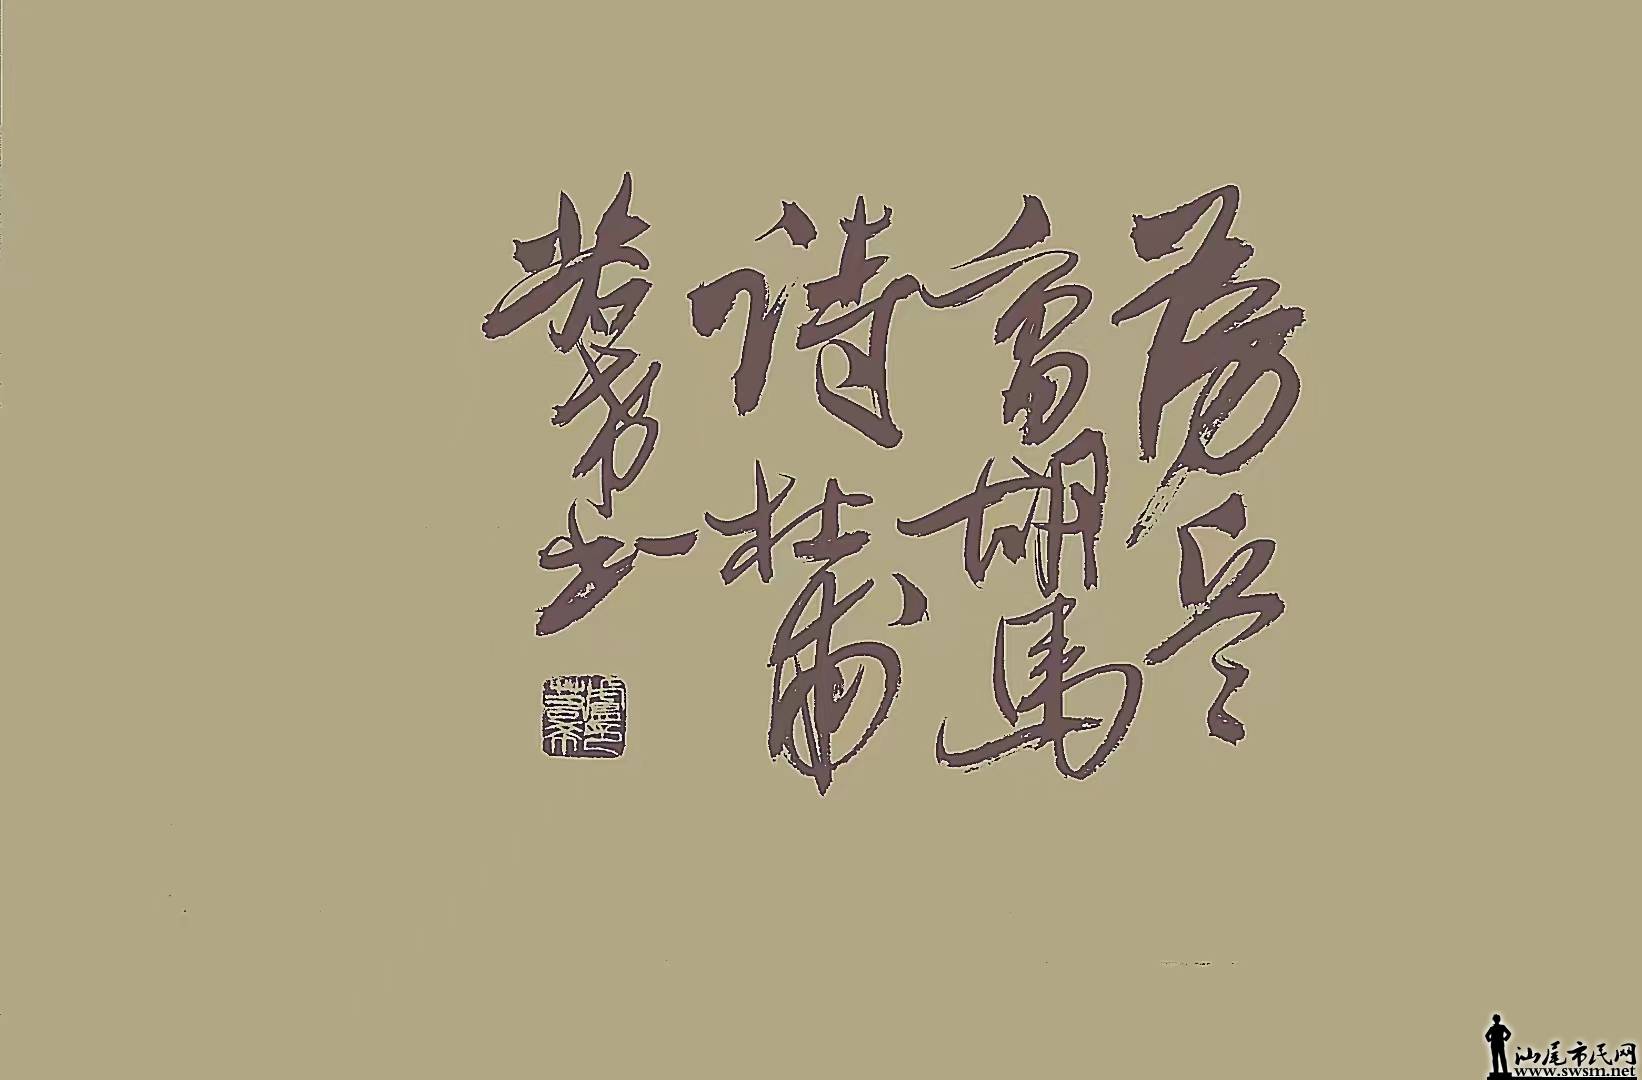 房兵
曹胡馬
詩杜甫
書
汕尾市民网
www.swsm.net